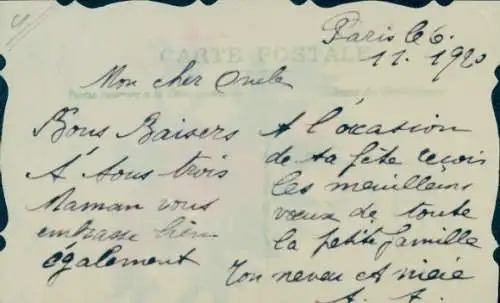 Paris le 6.
11. 1920
CARTE POSTALE
Mon cher Oncle
A l'occasion
de ta fête reçois
les meuilleurs
vœux de toute
la petite famille
Ton neveu et nièce
A. A.
Bons Baisers
A tous trois
Maman vous
embrasse bien
également